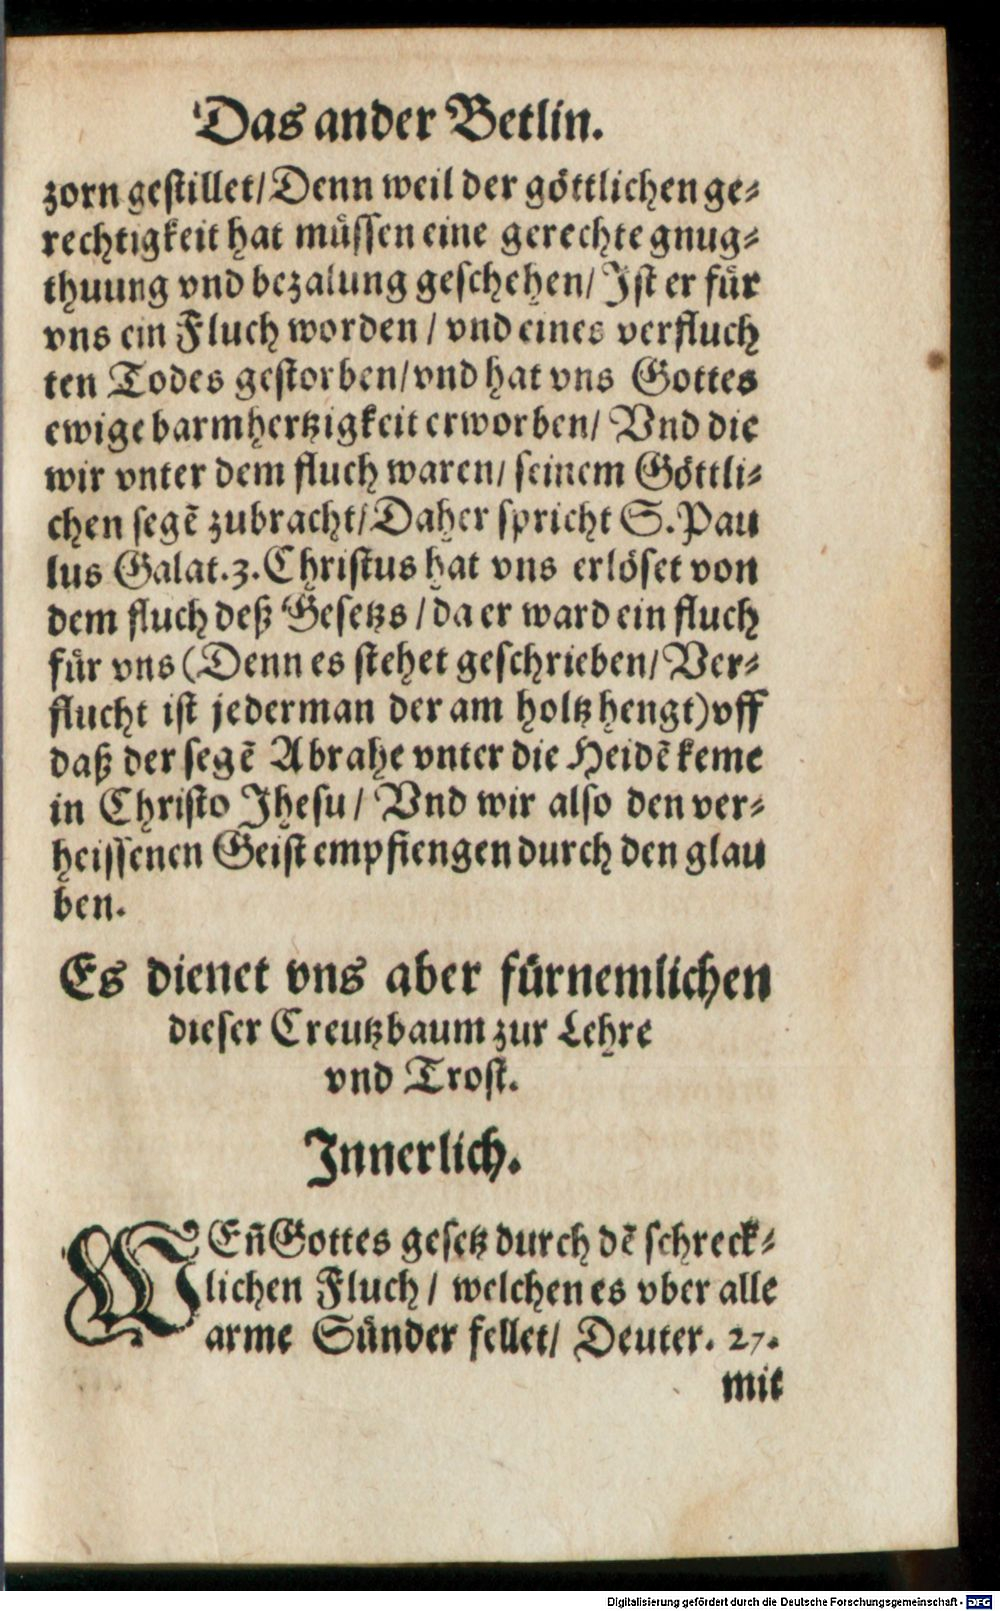 Das ander Betlin.
zorn gestillet/Denn weil der göttlichen ge⸗
rechtigkeit hat müssen eine gerechte gnug⸗
thuung vnd bezalung geschehen/ Ist er für
vns ein Fluch worden / vnd eines verfluch
ten Todes gestorben/vnd hat vns Gottes
ewige barmhertzigkeit erworben/ Vnd die
wir vnter dem fluch waren/ seinem Göttli⸗
chen segẽ zubracht/Daher spricht S. Pau
lus Galat. 3. Christus hat vns erlöset von
dem fluch deß Gesetzs / da er ward ein fluch
für vns (Denn es stehet geschrieben/ Ver⸗
flucht ist jederman der am holtz hengt) vff
daß der segẽ Abrahe vnter die Heidẽ keme
in Christo Jhesu / Vnd wir also den ver⸗
heissenen Geist empfiengen durch den glau
ben.
Es dienet vns aber fürnemlichen
dieser Creutzbaum zur Lehre
vnd Trost.
Innerlich.
WEñ Gottes gesetz durch dẽ schreck⸗
lichen Fluch / welchen es vber alle
arme Sünder fellet/ Deuter. 27.
mit
Digitalisierung gefördert durch die Deutsche Forschungsgemeinschaft - DFG